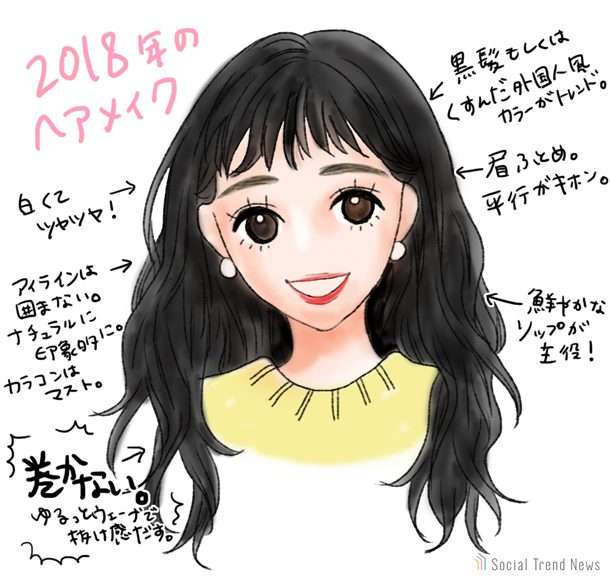 2018年の
ヘアメイク
黒髪もしくは
くすんだ外国人風
カラーがトレンド。
眉ふとめ。
平行がキホン。
白くて
ツヤツヤ！
アイラインは
囲まない。
ナチュラルに
印象的に。
カラコンは
マスト。
鮮やかな
リップが
主役！
巻かない。
ゆるっとウェーブで
抜け感だす。
Social Trend News